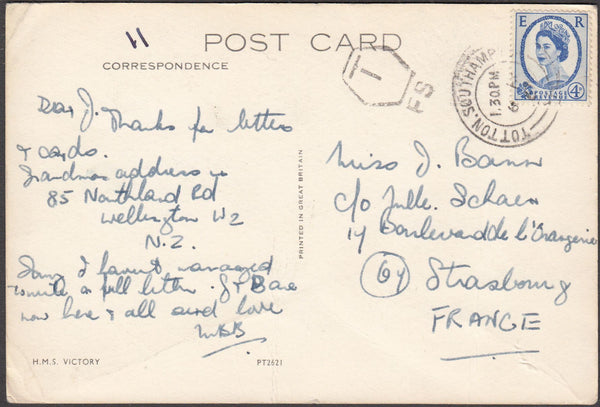 11
POST CARD
CORRESPONDENCE
Dear J. Thanks for letters
& cards.
Grandmas address is
85 Northland Rd
Wellington W2
N.Z.
Sorry I havent managed
to write a full letter.
now here & all send love
PRINTED IN GREAT BRITAIN
H.M.S. VICTORY
PT2621
T
FS
TOTTON. SOUTHAMP
1.30PM
E R
POSTAGE REVENUE
4D
Miss J. Bann
c/o Mlle. Schaer
14 Boulevard de l'Orangerie
(67) Strasbourg
FRANCE